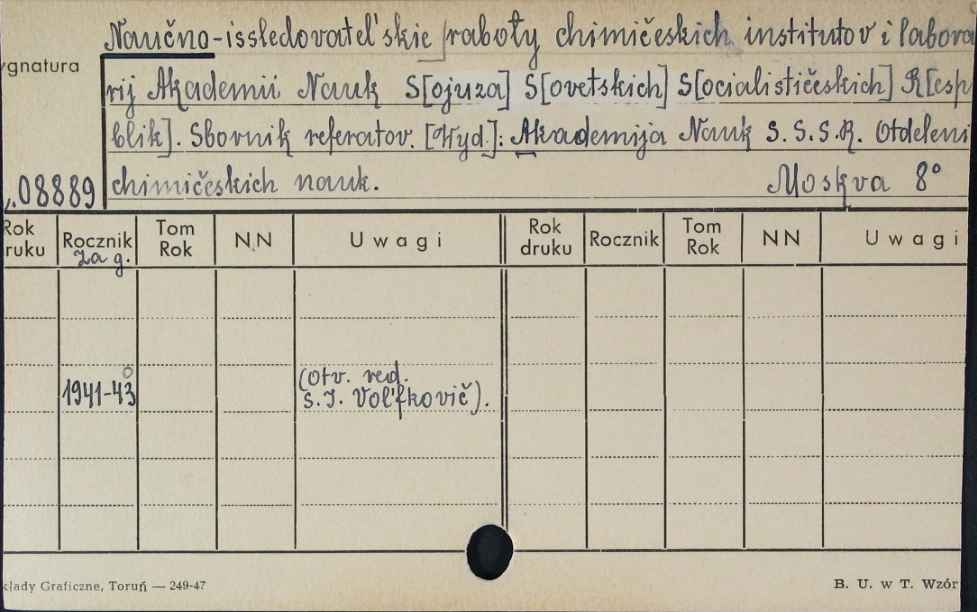 Naučno-issledovatel'skie raboty chimičeskich institutov i labora
ygnatura
rij Akademii Nauk S[ojuza] S[ovetskich] S[ocialističeskich] R[esp
blik]. Sbornik referatov. [Wyd.]: Akademija Nauk S.S.S.R. Otdeleni
08889 chimičeskich nauk. Moskva 8°
Rok druku Rocznik za g. Tom Rok NN Uwagi Rok druku Rocznik Tom Rok NN Uwagi
1941-43 (Otv. red.
S. I. Vol'fkovič).
kłady Graficzne, Toruń — 249-47 B. U. w T. Wzór